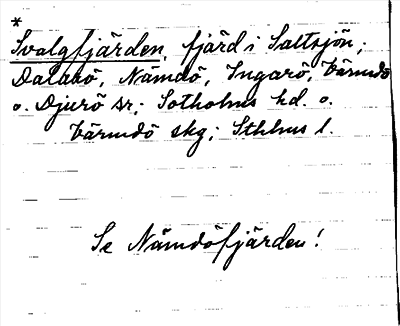 *
Svalgfjärden, fjärd i Saltsjön;
Dalarö, Nämdö, Ingarö, Värmdö
o. Djurö sr; Sotholms hd. o.
Värmdö skg; Sthlms l.
Se Nämdöfjärden!